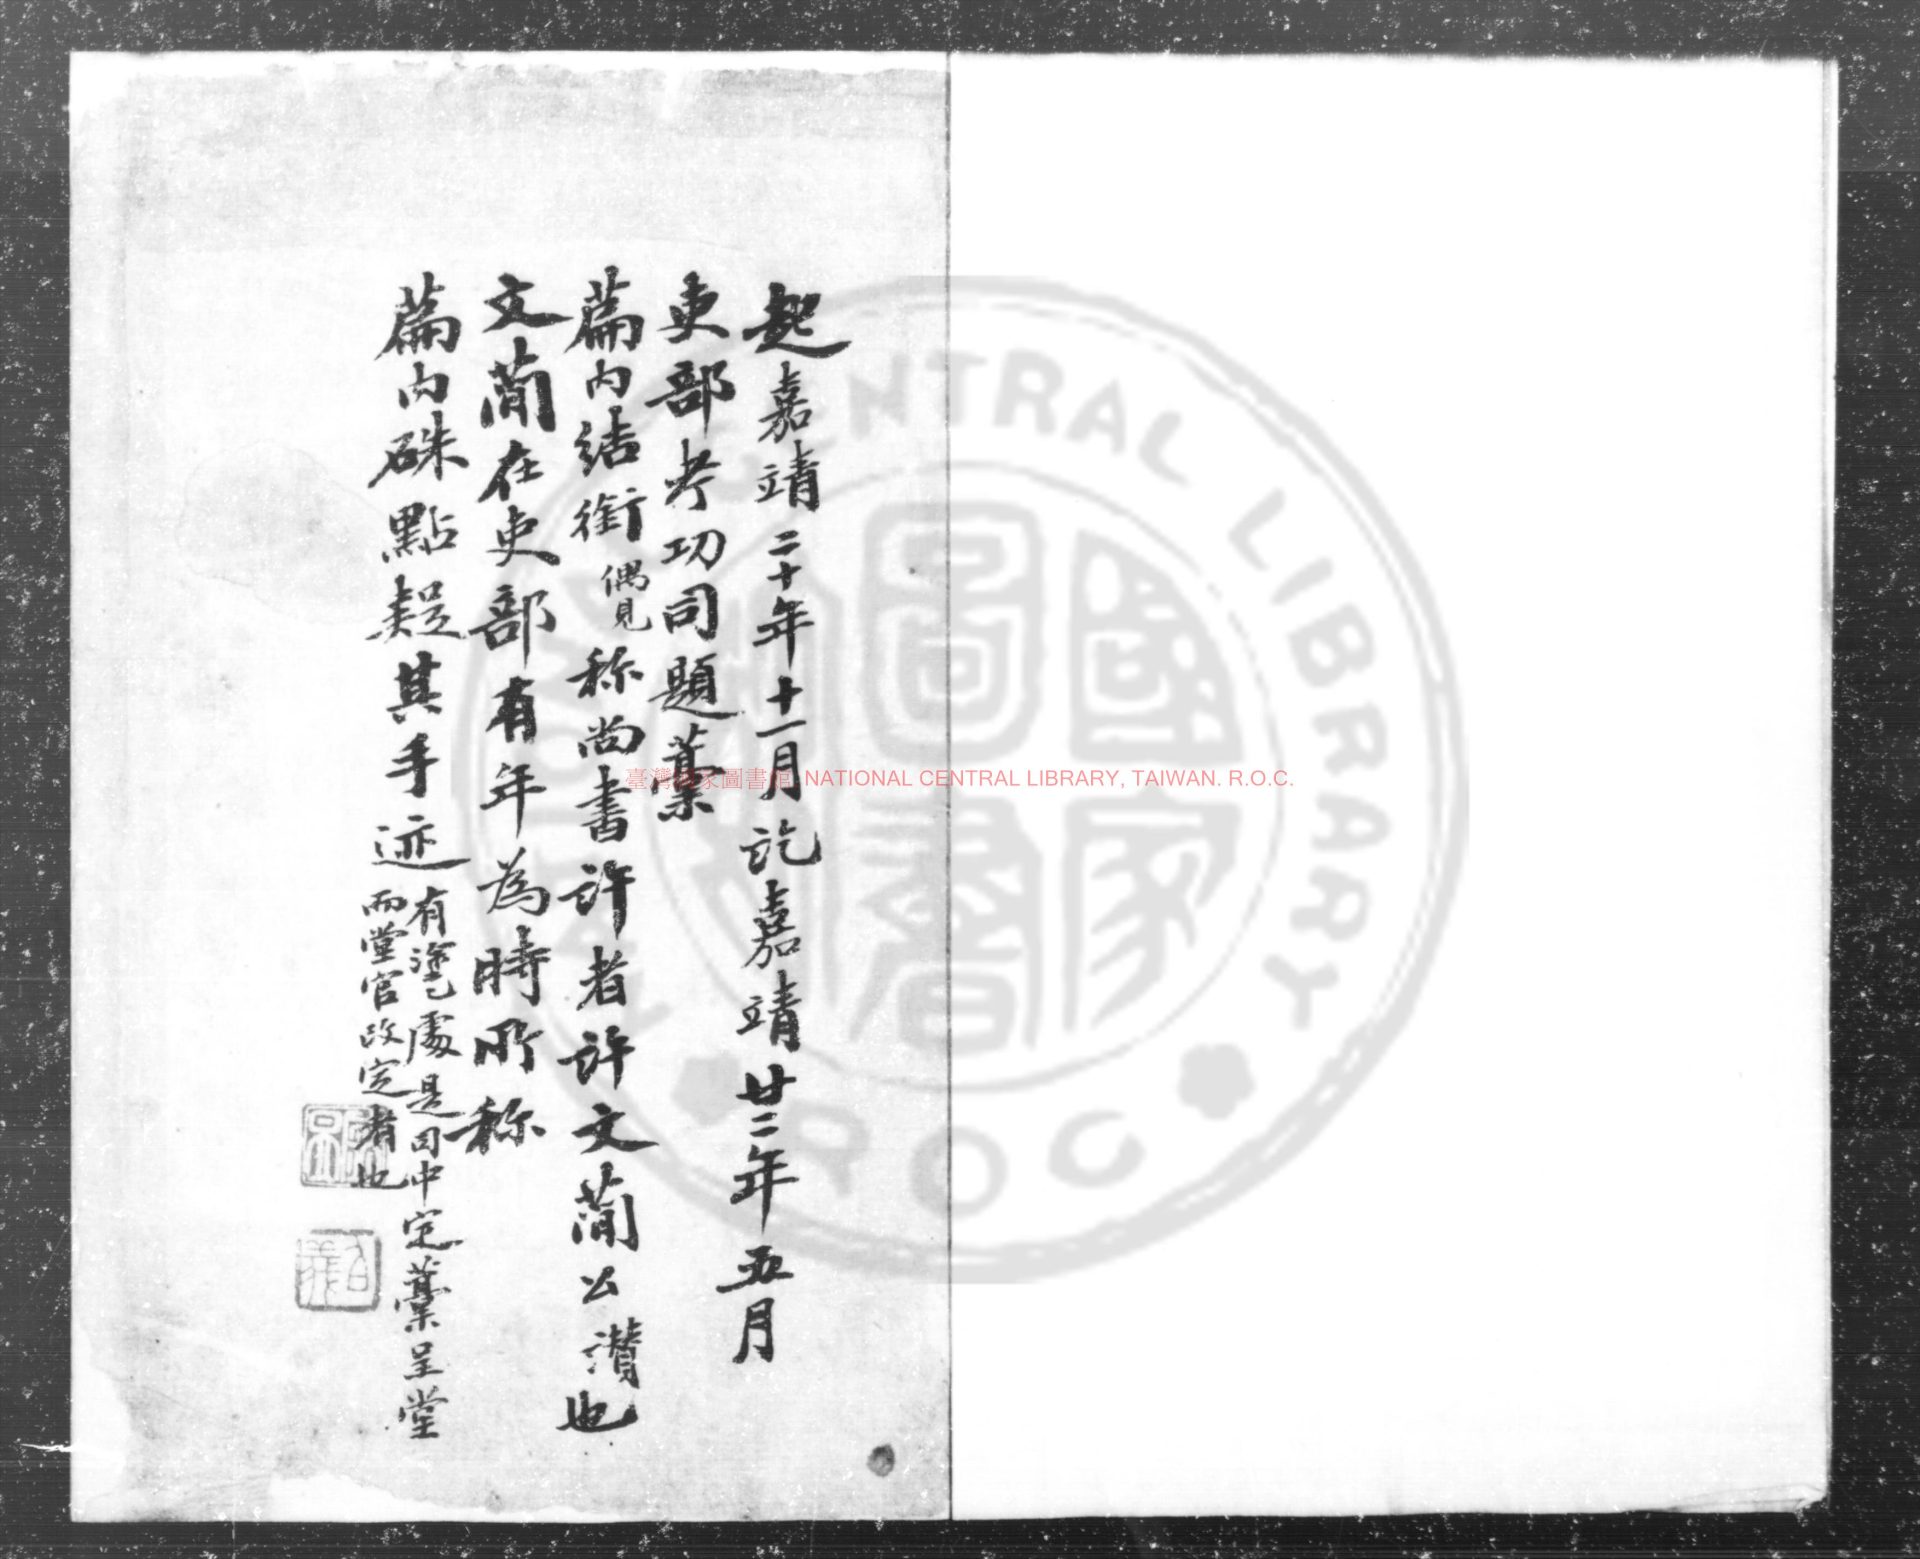 起嘉靖二十年十一月訖嘉靖廿二年五月
吏部考功司題藁
篇内結銜偶見称尚書許者許文蕳公讃也
文蕳在吏部有年為時所称
篇内硃點疑其手迹
有塗乙處是司中定藁呈堂
而堂官改定者也
臺灣國家圖書館 NATIONAL CENTRAL LIBRARY, TAIWAN. R.O.C.
國家圖書館
CENTRAL LIBRARY
ROC